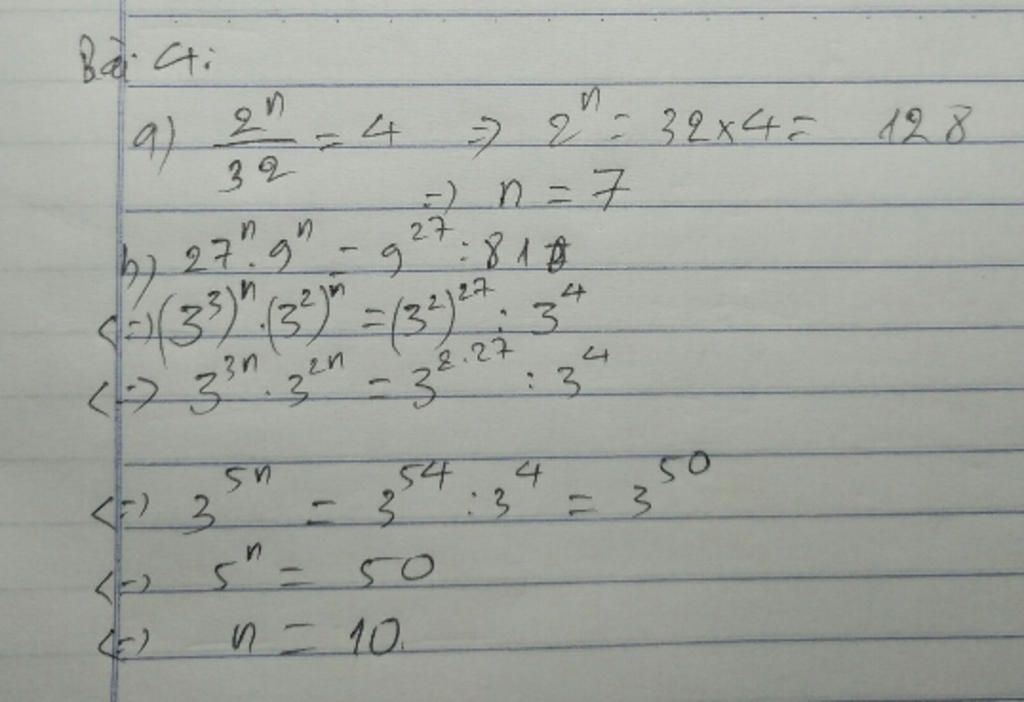 Bài 4:
a) 2ⁿ/32 = 4 => 2ⁿ = 32 x 4 = 128
=> n = 7
b) 27ⁿ . 9ⁿ = 9²⁷ : 81
<=> (3³)ⁿ . (3²)ⁿ = (3²)²⁷ : 3⁴
<=> 3³ⁿ . 3²ⁿ = 3^2.27 : 3⁴
<=> 3⁵ⁿ = 3⁵⁴ : 3⁴ = 3⁵⁰
<=> 5ⁿ = 50
<=> n = 10.